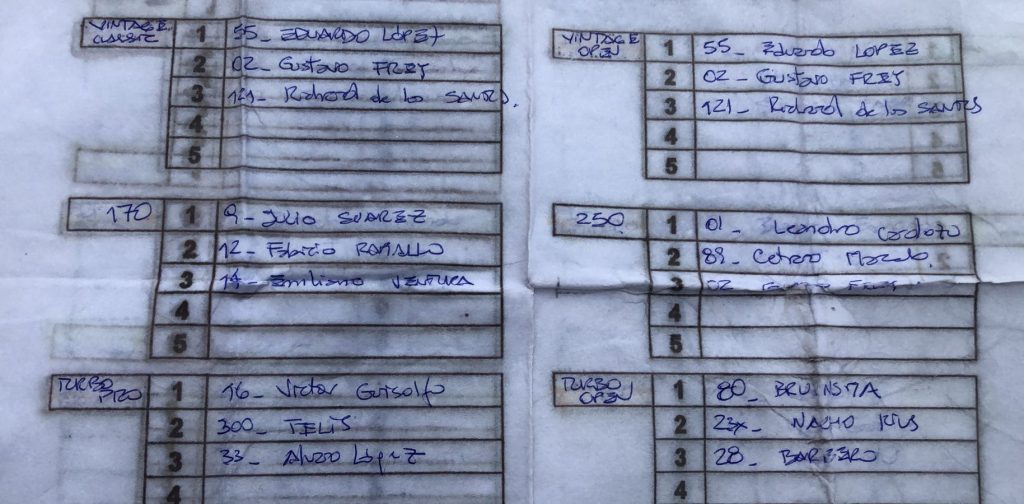 VINTAGE CLASSIC
1 55- EDUARDO LOPEZ
2 02- Gustavo FREY
3 121- Richard de los SANTOS.
4
5
VINTAGE OPEN
1 55- Eduardo LOPEZ
2 02- Gustavo FREY
3 121- Richard de los SANTOS
4
5
170
1 9- Julio SUAREZ
2 12- Fabricio RAMALLO
3 14- Emiliano VENTURA
4
5
250
1 01- Leandro Cardozo
2 89-
3 02 FREY
4
5
TURBO PRO
1 16- Victor Guisolfo
2 300- TELIS
3 33- Alvaro López
4
TURBO OPEN
1 80- BRUINSMA
2 NACHO RIUS
3 28- BARBERO
4